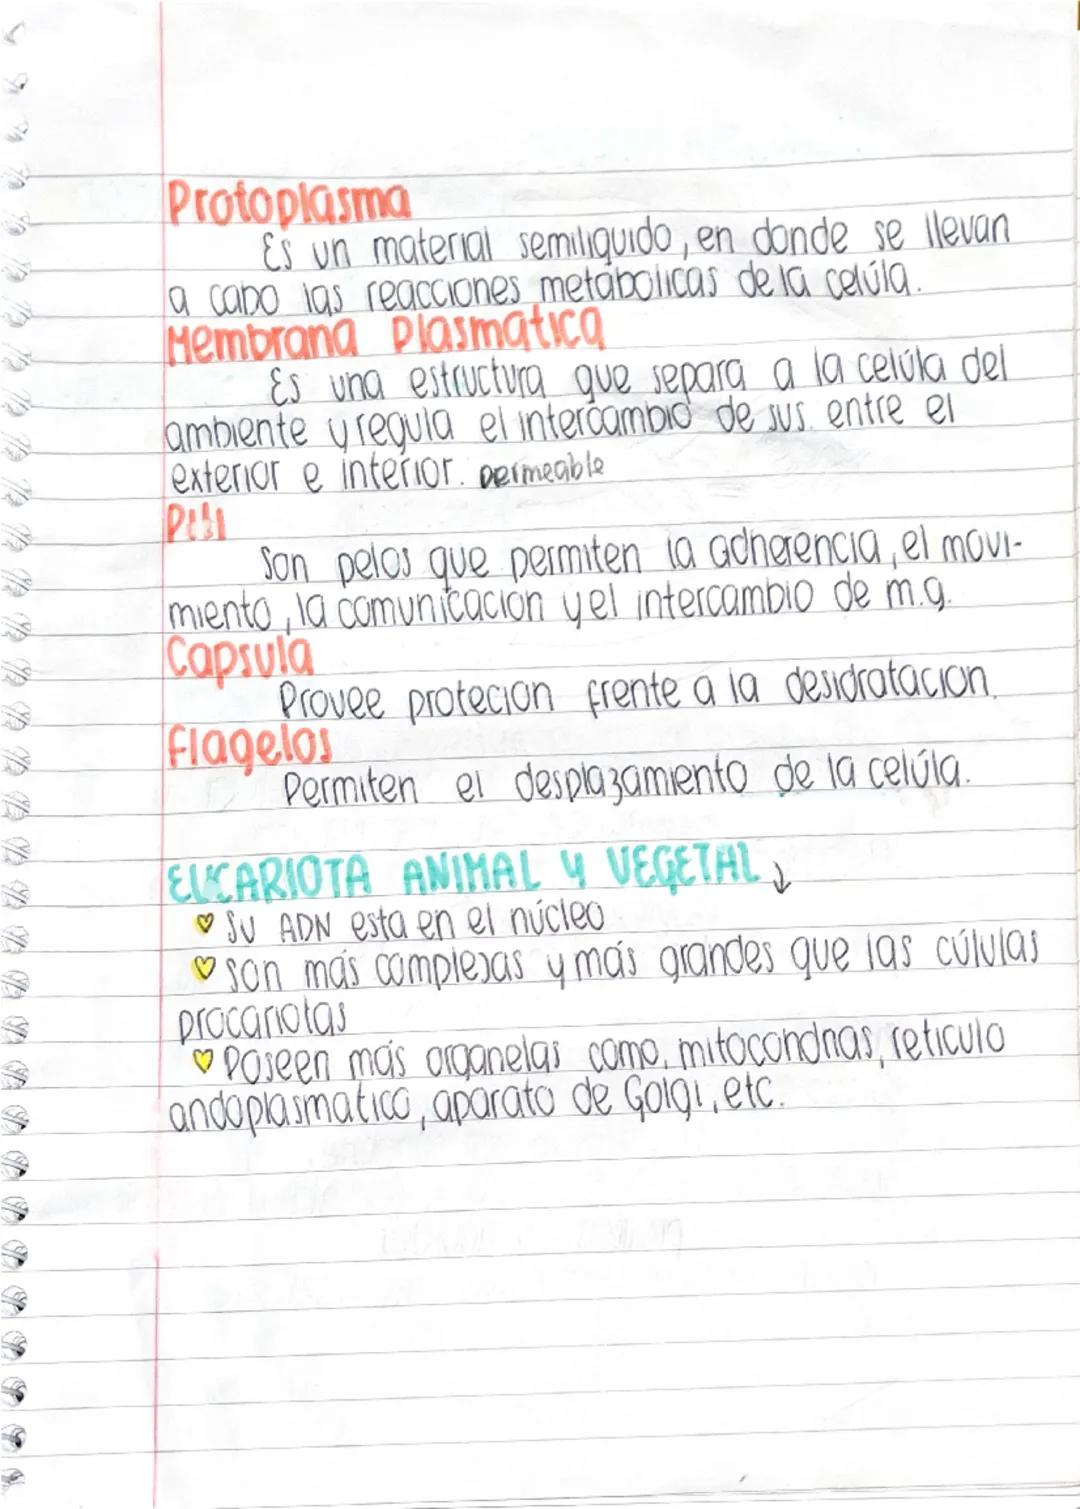 Protoplasma
Es un material semiliquido, en donde se llevan
a cabo las reacciones metabolicas de la celúla.
Membrana Plasmatica
Es una estructura que separa a la celúla del
ambiente y regula el intercambio de sus. entre el
exterior e interior. permeable
Pili
Son pelos que permiten la adherencia, el movi-
miento, la comunicacion y el intercambio de m.g.
Capsula
Provee protecion frente a la desidratacion.
Flagelos
Permiten el desplazamiento de la celúla.
EUCARIOTA ANIMAL Y VEGETAL ↓
♡ SU ADN esta en el núcleo
♡ son más complejas y más grandes que las cúlulas
procariotas
♡ Poseen más organelas como, mitocondrias, reticulo
andoplasmatico, aparato de Golgi, etc.